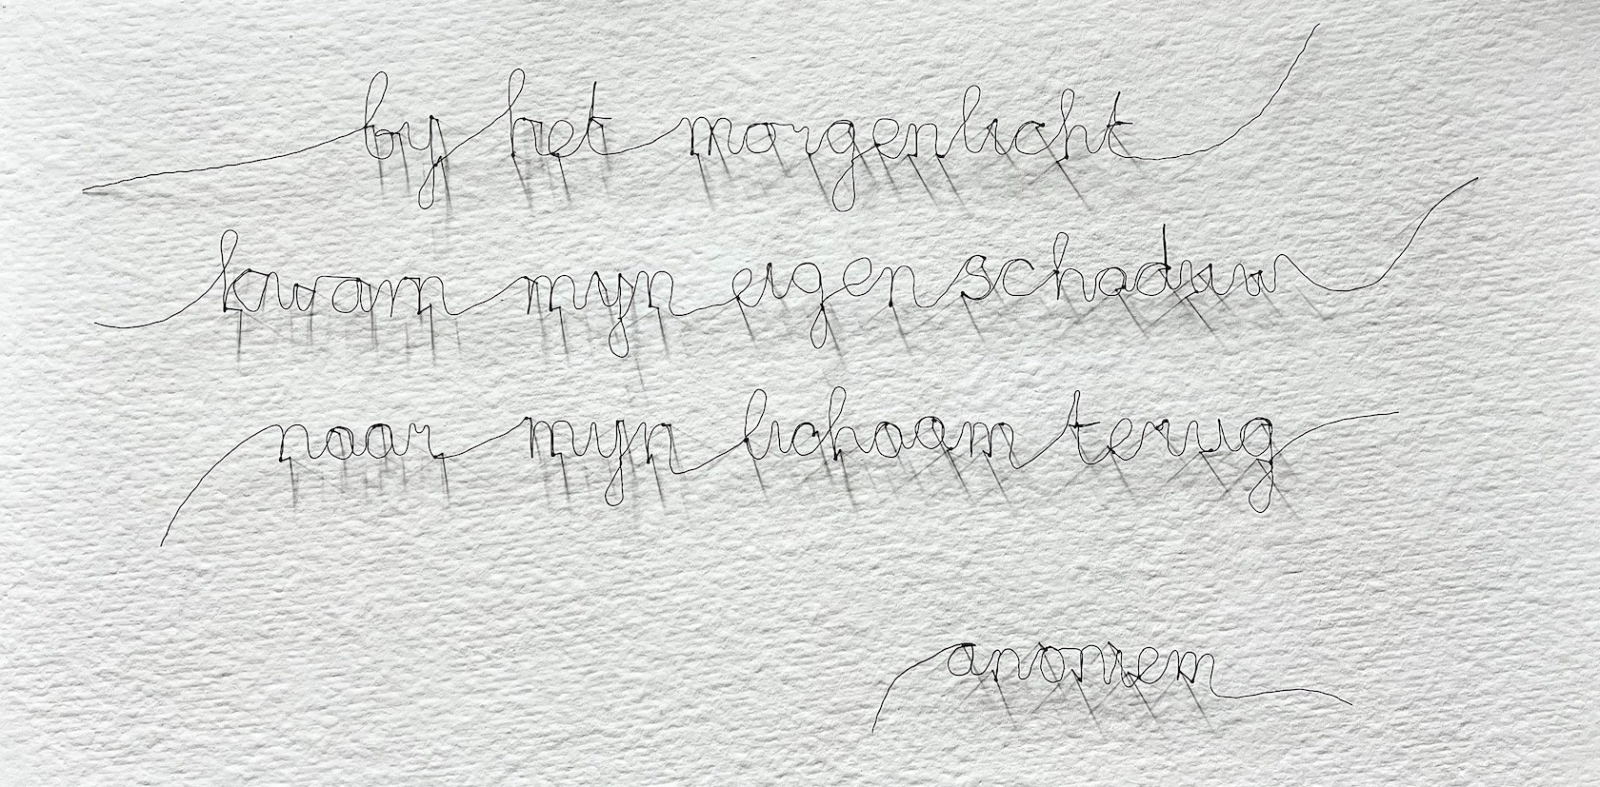 bij het morgenlicht
kwam mijn eigen schaduw
naar mijn lichaam terug
anoniem